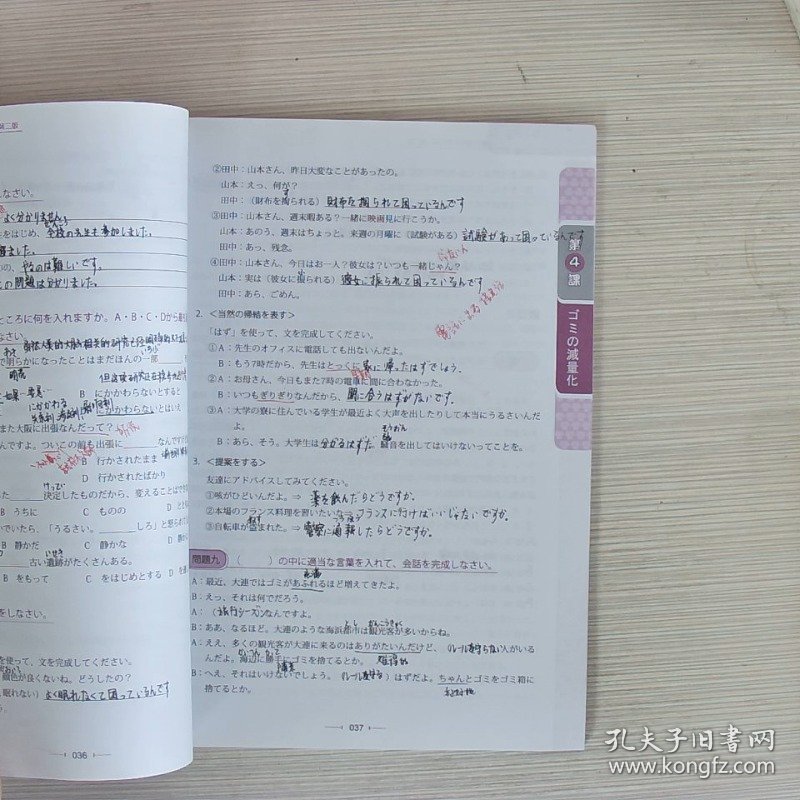 第二版
しなさい。
よく分かりません
をはじめ、学校の先生も参加しました。
ました。
の、やるのは難しいです。
この問題は分かりました。
ところに何を入れますか。A・B・C・Dから最
なさい。
で明らかになったことはまだほんの一部
B にかかわらないとすると
にかかわる
D にかかわらないとはいえ
また大阪に出張なんだって？
んですよ。ついこの前も出張に なんですが
B 行かされたまま
D 行かされたばかり
た 決定したものだから、変えることはでき
B うちに C ものの D と
いでいたら、「うるさい。 しろ」と怒られて
B 静かだ C 静かな D 静か
古い遺跡がたくさんある。
B をもって C をはじめとする D を
をしなさい。
を使って、文を完成してください。
顔色が良くないね。どうしたの？
眠れない）よく眠れなくて困っているんです
036
②田中：山本さん、昨日大変なことがあったの。
山本：えっ、何が？
田中：（財布を掏られる）財布を掏られて困っているんです
③田中：山本さん、週末暇ある？一緒に映画見に行こうか。
山本：あのう、週末はちょっと。来週の月曜に（試験がある）試験があって困っているんです
田中：あっ、残念。
④田中：山本さん、今日はお一人？彼女は？いつも一緒じゃん？
山本：実は（彼女に振られる）彼女に振られて困っているんです
田中：あら、ごめん。
2. ＜当然の帰結を表す＞
「はず」を使って、文を完成してください。
①A：先生のオフィスに電話しても出ないんだよ。
B：もう7時だから、先生はとっくに家に帰ったはずでしょう。
②A：お母さん、今日もまた7時の電車に間に合わなかった。
B：いつもぎりぎりなんだから、間に合うはずがないです。
③A：大学の寮に住んでいる学生が最近よく大声を出したりして本当にうるさいんだ
よ。
B：あら、そう。大学生は分かるはずだ。騒音を出してはいけないってことを。
3. ＜提案をする＞
友達にアドバイスしてみてください。
①咳がひどいんだよ。⇒ 薬を飲んだらどうですか。
②本場のフランス料理を習いたいな⇒フランスに行けばいいじゃないですか。
③自転車が盗まれた。⇒ 警察に通報したらどうですか。
問題九 （ ）の中に適当な言葉を入れて、会話を完成しなさい。
A：最近、大連ではゴミがあふれるほど増えてきたよ。
B：えっ、それは何でだろう。
A：（旅行シーズンなんですよ。
B：ああ、なるほど。大連のような海浜都市は観光客が多いからね。
A：ええ、多くの観光客が大連に来るのはありがたいんだけど、（ルールを守らない人がいる
んだよ。海辺に勝手にゴミを捨てるとか。
B：へえ、それはいけないでしょう。（ルールを守る）はずだよ。ちゃんとゴミをゴミ箱に
捨てるとか。
037
第
4
課
ゴミの減量化
孔夫子旧书网
www.kongfz.com